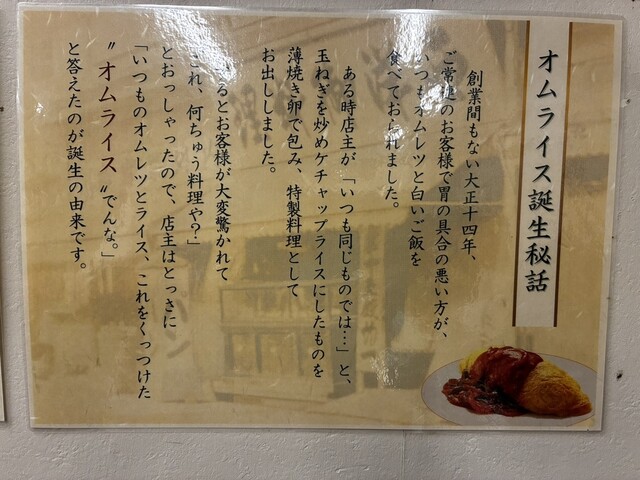 オムライス誕生秘話
創業間もない大正十四年、
ご常連のお客様で胃の具合の悪い方が、
いつもオムレツと白いご飯を
食べておられました。
ある時店主が「いつも同じものでは…」と、
玉ねぎを炒めケチャップライスにしたものを
薄焼き卵で包み、特製料理として
お出ししました。
するとお客様が大変驚かれて
「これ、何ちゅう料理や?」
とおっしゃったので、店主はとっさに
「いつものオムレツとライス、これをくっつけた
〝オムライス〟でんな。」
と答えたのが誕生の由来です。